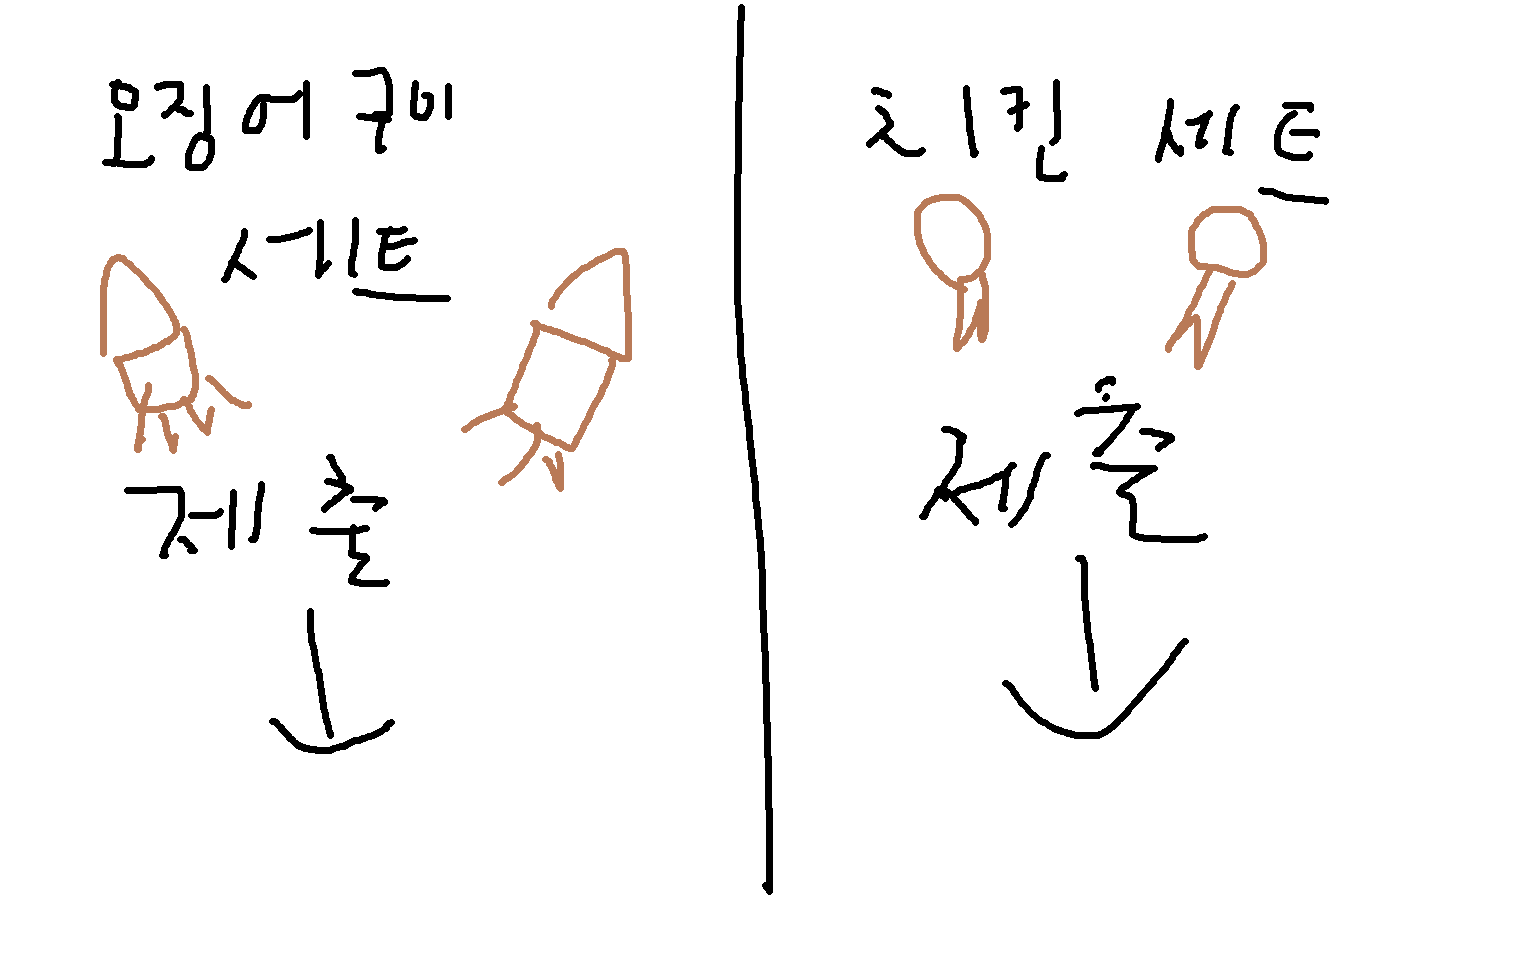 오징어 구이
세트
제출
치킨 세트
제출